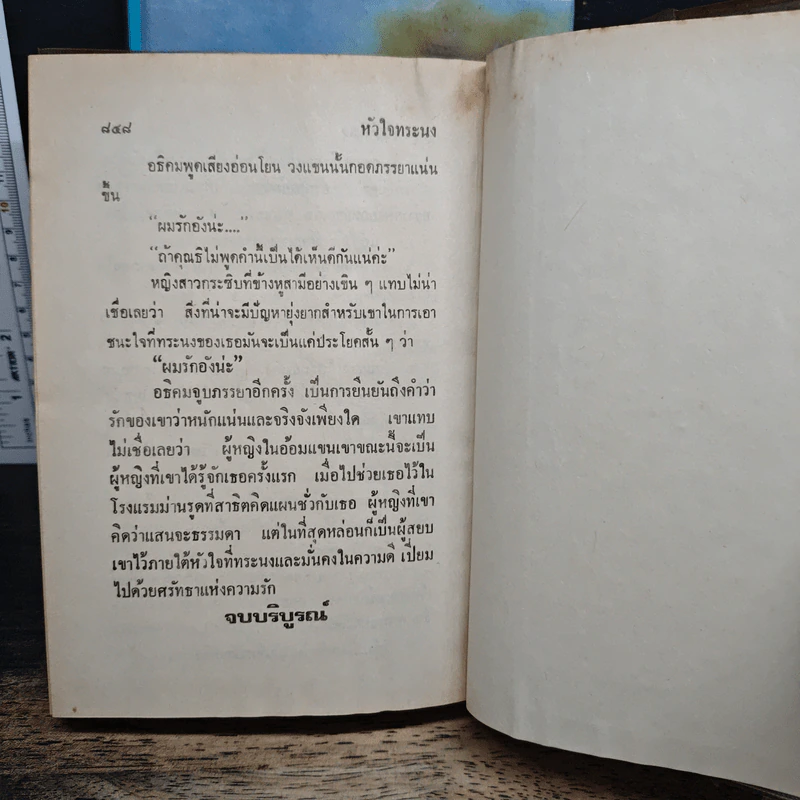 ๘๔๘ หัวใจทระนง
อธิคมพูดเสียงอ่อนโยน วงแขนนั้นกอดภรรยาแน่น
ขึ้น
“ผมรักอังน่ะ....”
“ถ้าคุณธิไม่พูดคำนี้เป็นได้เห็นดีกันแน่ค่ะ”
หญิงสาวกระซิบที่ข้างหูสามีอย่างเขิน ๆ แทบไม่น่า
เชื่อเลยว่า สิ่งที่น่าจะมีปัญหายุ่งยากสำหรับเขาในการเอา
ชนะใจที่ทระนงของเธอมันจะเป็นแค่ประโยคสั้น ๆ ว่า
“ผมรักอังน่ะ”
อธิคมจูบภรรยาอีกครั้ง เป็นการยืนยันถึงคำว่า
รักของเขาว่าหนักแน่นและจริงจังเพียงใด เขาแทบ
ไม่เชื่อเลยว่า ผู้หญิงในอ้อมแขนเขาขณะนี้จะเป็น
ผู้หญิงที่เขาได้รู้จักเธอครั้งแรก เมื่อไปช่วยเธอไว้ใน
โรงแรมม่านรูดที่สาธิตคิดแผนชั่วกับเธอ ผู้หญิงที่เขา
คิดว่าแสนจะธรรมดา แต่ในที่สุดหล่อนก็เป็นผู้สยบ
เขาไว้ภายใต้หัวใจที่ทระนงและมั่นคงในความดี เปี่ยม
ไปด้วยศรัทธาแห่งความรัก
จบบริบูรณ์